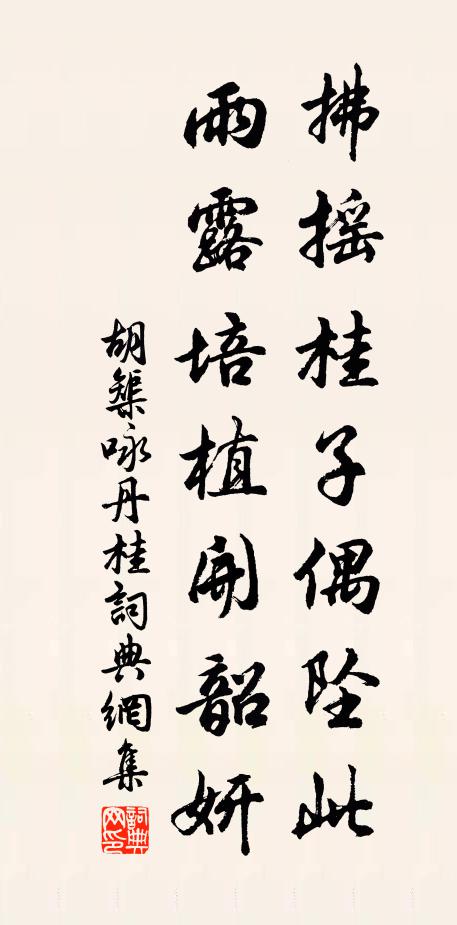 拂摇桂子偶坠此
雨露培植開韶妍
胡榘咏丹桂詞典網集
詞典网印